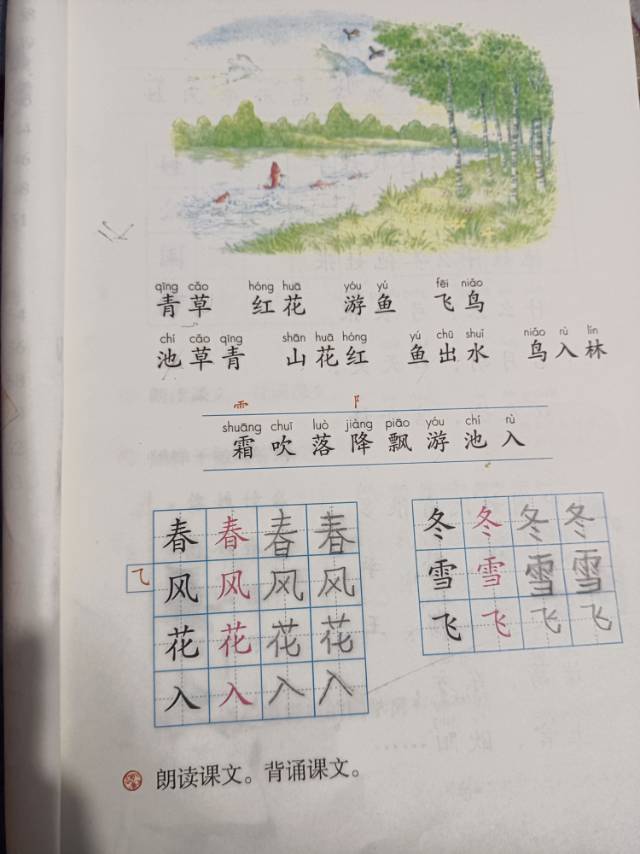 qīng cǎo hóng huā yóu yú fēi niǎo
青草 红花 游鱼 飞鸟
chí cǎo qīng shān huā hóng yú chū shuǐ niǎo rù lín
池草青 山花红 鱼出水 鸟入林
⻗ 阝
shuāng chuī luò jiàng piāo yóu chí rù
霜吹落降飘游池入
春春春春 冬冬冬冬
风风风风 雪雪雪雪
花花花花 飞飞飞飞
入入入入
朗读课文。背诵课文。